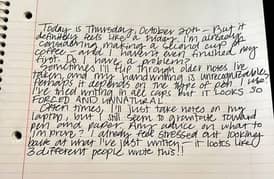 Today is Thursday, October 20th — But it
definitely feels like a Friday. I'm already
considering making a second cup of
coffee — and I haven't even finished my
first. Do I have a problem?
Sometimes I'll flip through older notes I've
taken, and my handwriting is unrecognizable.
Perhaps it depends on the type of pen I use?
I've tried writing in all caps but IT LOOKS SO
FORCED AND UNNATURAL.
Often times, I'll just take notes on my
laptop, but I still seem to gravitate toward
pen and paper. Any advice on what to
improve? I already feel stressed out looking
back at what I've just written — it looks like
3 different people wrote this!!